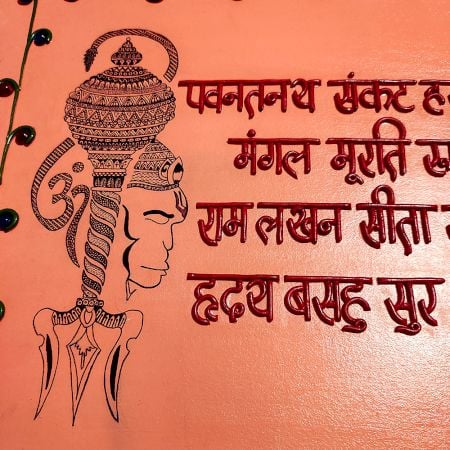 ॐ
पवनतनय संकट
मंगल मूरति
राम लखन सीता
हृदय बसहु सुर